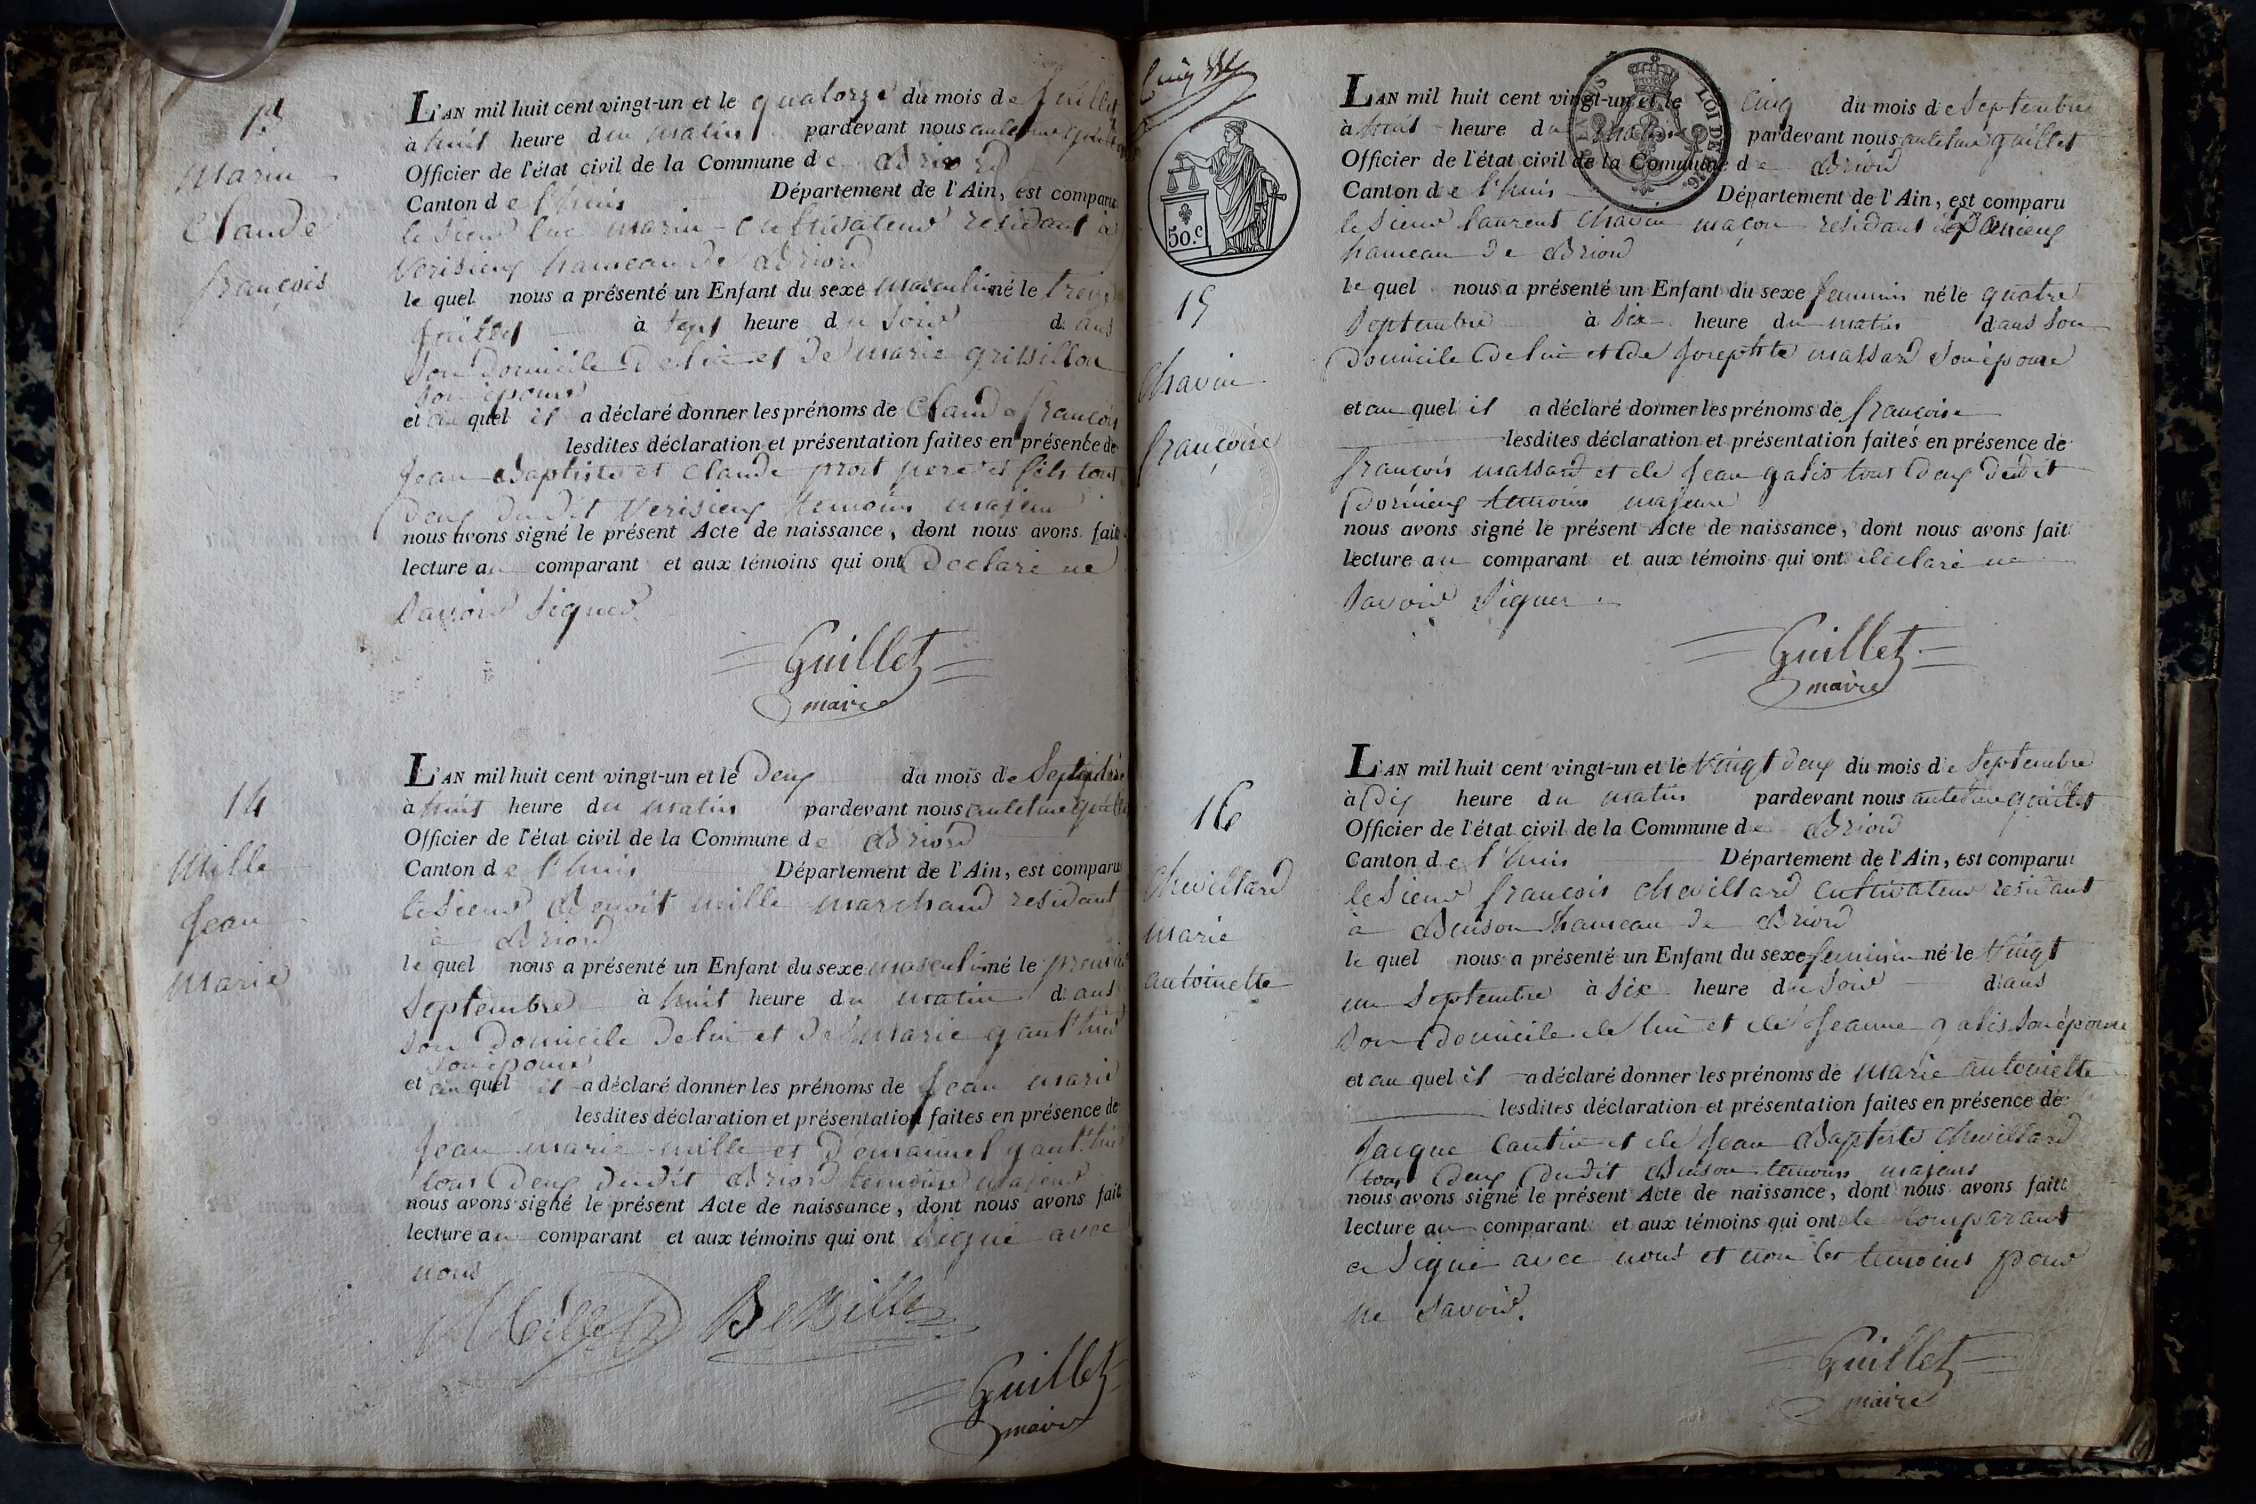 13
Marin
Claude
françois
L'AN mil huit cent vingt-un et le quatorze du mois de juillet
à huit heure du matin pardevant nous antelme guillet
Officier de l'état civil de la Commune de Briord
Canton de l'huis Département de l'Ain, est comparu
le sieur luc marin cultivateur residant à
Verisieux hameau de Briord
le quel nous a présenté un Enfant du sexe masculin né le treize
juillet à sept heure du soir dans
son domicile de lui et de marie grissillon
son épouse
et au quel il a déclaré donner les prénoms de Claude françois
lesdites déclaration et présentation faites en présence de
jean Baptiste et Claude prost pere et fils tous
deux du dit Verisieux temoins majeurs
nous avons signé le présent Acte de naissance, dont nous avons fait
lecture au comparant et aux témoins qui ont déclaré ne
savoir signer.
Guillet
maire
14
Mille
jean
marie
L'AN mil huit cent vingt-un et le deux du mois de septembre
à huit heure du matin pardevant nous antelme guillet
Officier de l'état civil de la Commune de Briord
Canton de l'huis Département de l'Ain, est comparu
le sieur Benoit mille marchand residant
à Briord
le quel nous a présenté un Enfant du sexe masculin né le premier
septembre à huit heure du matin dans
son domicile de lui et de marie
son épouse
et au quel il a déclaré donner les prénoms de jean marie
lesdites déclaration et présentation faites en présence de
jean marie mille et d'emanuel
tous deux dudit Briord temoins majeurs
nous avons signé le présent Acte de naissance, dont nous avons fait
lecture au comparant et aux témoins qui ont signé avec
nous
Mille B Mille
Guillet
maire
50.c
15
Chavin
françoise
L'AN mil huit cent vingt-un et le cinq du mois de septembre
à huit heure du matin pardevant nous antelme guillet
Officier de l'état civil de la Commune de Briord
Canton de l'huis Département de l'Ain, est comparu
le sieur laurent Chavin maçon residant à Dornieux
hameau de Briord
le quel nous a présenté un Enfant du sexe feminin né le quatre
septembre à six heure du matin dans son
domicile de lui et de josephte massard son épouse
et au quel il a déclaré donner les prénoms de françoise
lesdites déclaration et présentation faites en présence de
françois massard et de jean gatis tous deux dudit
Dornieux temoins majeurs
nous avons signé le présent Acte de naissance, dont nous avons fait
lecture au comparant et aux témoins qui ont déclaré ne
savoir signer.
Guillet
maire
16
Chevillard
marie
antoinette
L'AN mil huit cent vingt-un et le vingt deux du mois de septembre
à dix heure du matin pardevant nous antelme guillet
Officier de l'état civil de la Commune de Briord
Canton de l'huis Département de l'Ain, est comparu
le sieur françois chevillard cultivateur residant
à Buison hameau de Briord
le quel nous a présenté un Enfant du sexe feminin né le vingt
un septembre à six heure du soir dans
son domicile de lui et de jeanne gatis son épouse
et au quel il a déclaré donner les prénoms de marie antoinette
lesdites déclaration et présentation faites en présence de
jacque cantin et de jean Baptiste chevillard
tous deux dudit Buison temoins majeurs
nous avons signé le présent Acte de naissance, dont nous avons fait
lecture au comparant et aux témoins qui ont le comparant
a signé avec nous et non les temoins pour
ne savoir.
Guillet
maire